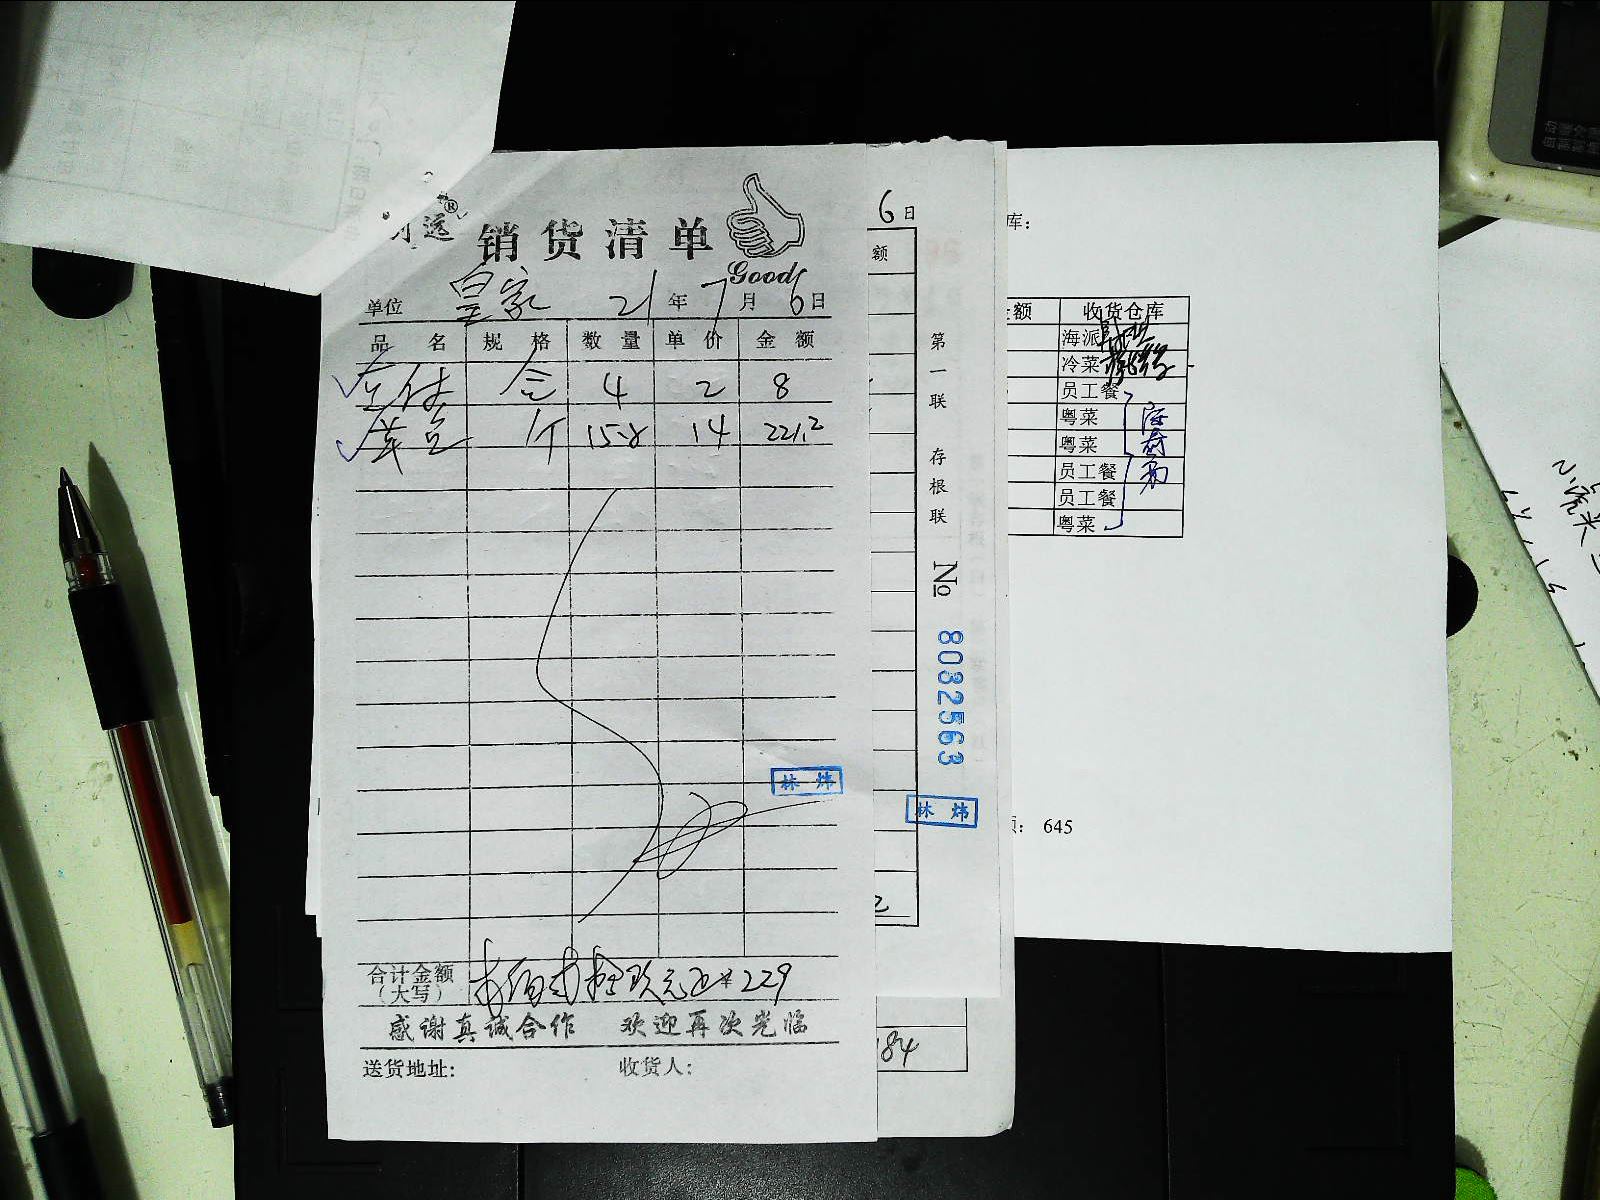 运®
销货清单
Good
单位 皇家 21年7月6日
品名 规格 数量 单价 金额
合 4 2 8
个 15.8 14 221.2
林炜
合计金额
(大写)
贰佰贰拾玖元正¥229
感谢真诚合作 欢迎再次光临
送货地址: 收货人:
6日
额
第一联 存根联
No 8032563
林炜
184
库:
额 收货仓库
海派
冷菜
员工餐
粤菜
粤菜
员工餐
员工餐
粤菜
: 645